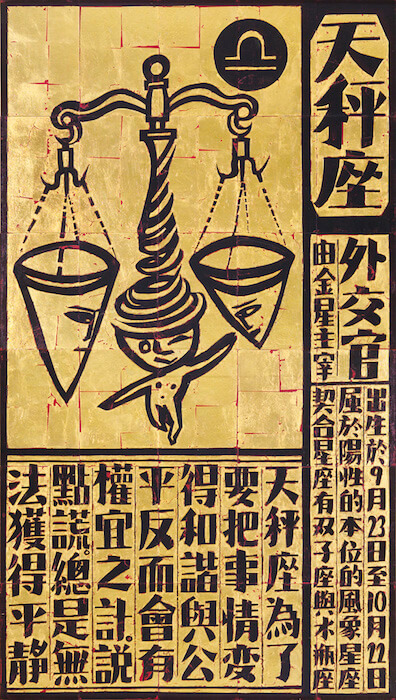 天秤座
外交官
由金星主宰
出生於9月23日至10月22日
属於陽性的本位的風象星座
契合星座有双子座與水瓶座
天秤座為了
要把事情变
得和諧與公
平反而會有
權宜之計。說
點謊。總是無
法獲得平靜